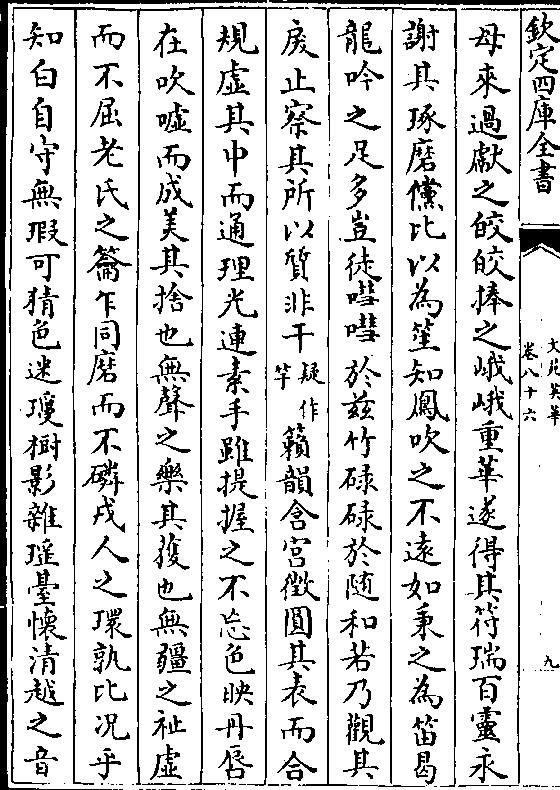 欽定四庫全書
文苑英華
卷八十六
九
母來過獻之皎皎捧之峨峨重華遂得其符瑞百靈永
謝其琢磨儻比以為笙知鳳吹之不遠如秉之為笛曷
龍吟之足多豈徒嘒嘒於兹竹碌碌於随和若乃觀其
戾止察其所以質非干疑作竿籟韻含宫徴圓其表而合
規虚其中而通理光連素手雖提握之不忘色映丹唇
在吹嘘而成美其捨也無聲之樂其複也無疆之祉虚
而不屈老氏之籥乍同磨而不磷戎人之環孰比况乎
知白自守無瑕可猜色迷瓊樹影雜瑶臺懷清越之音